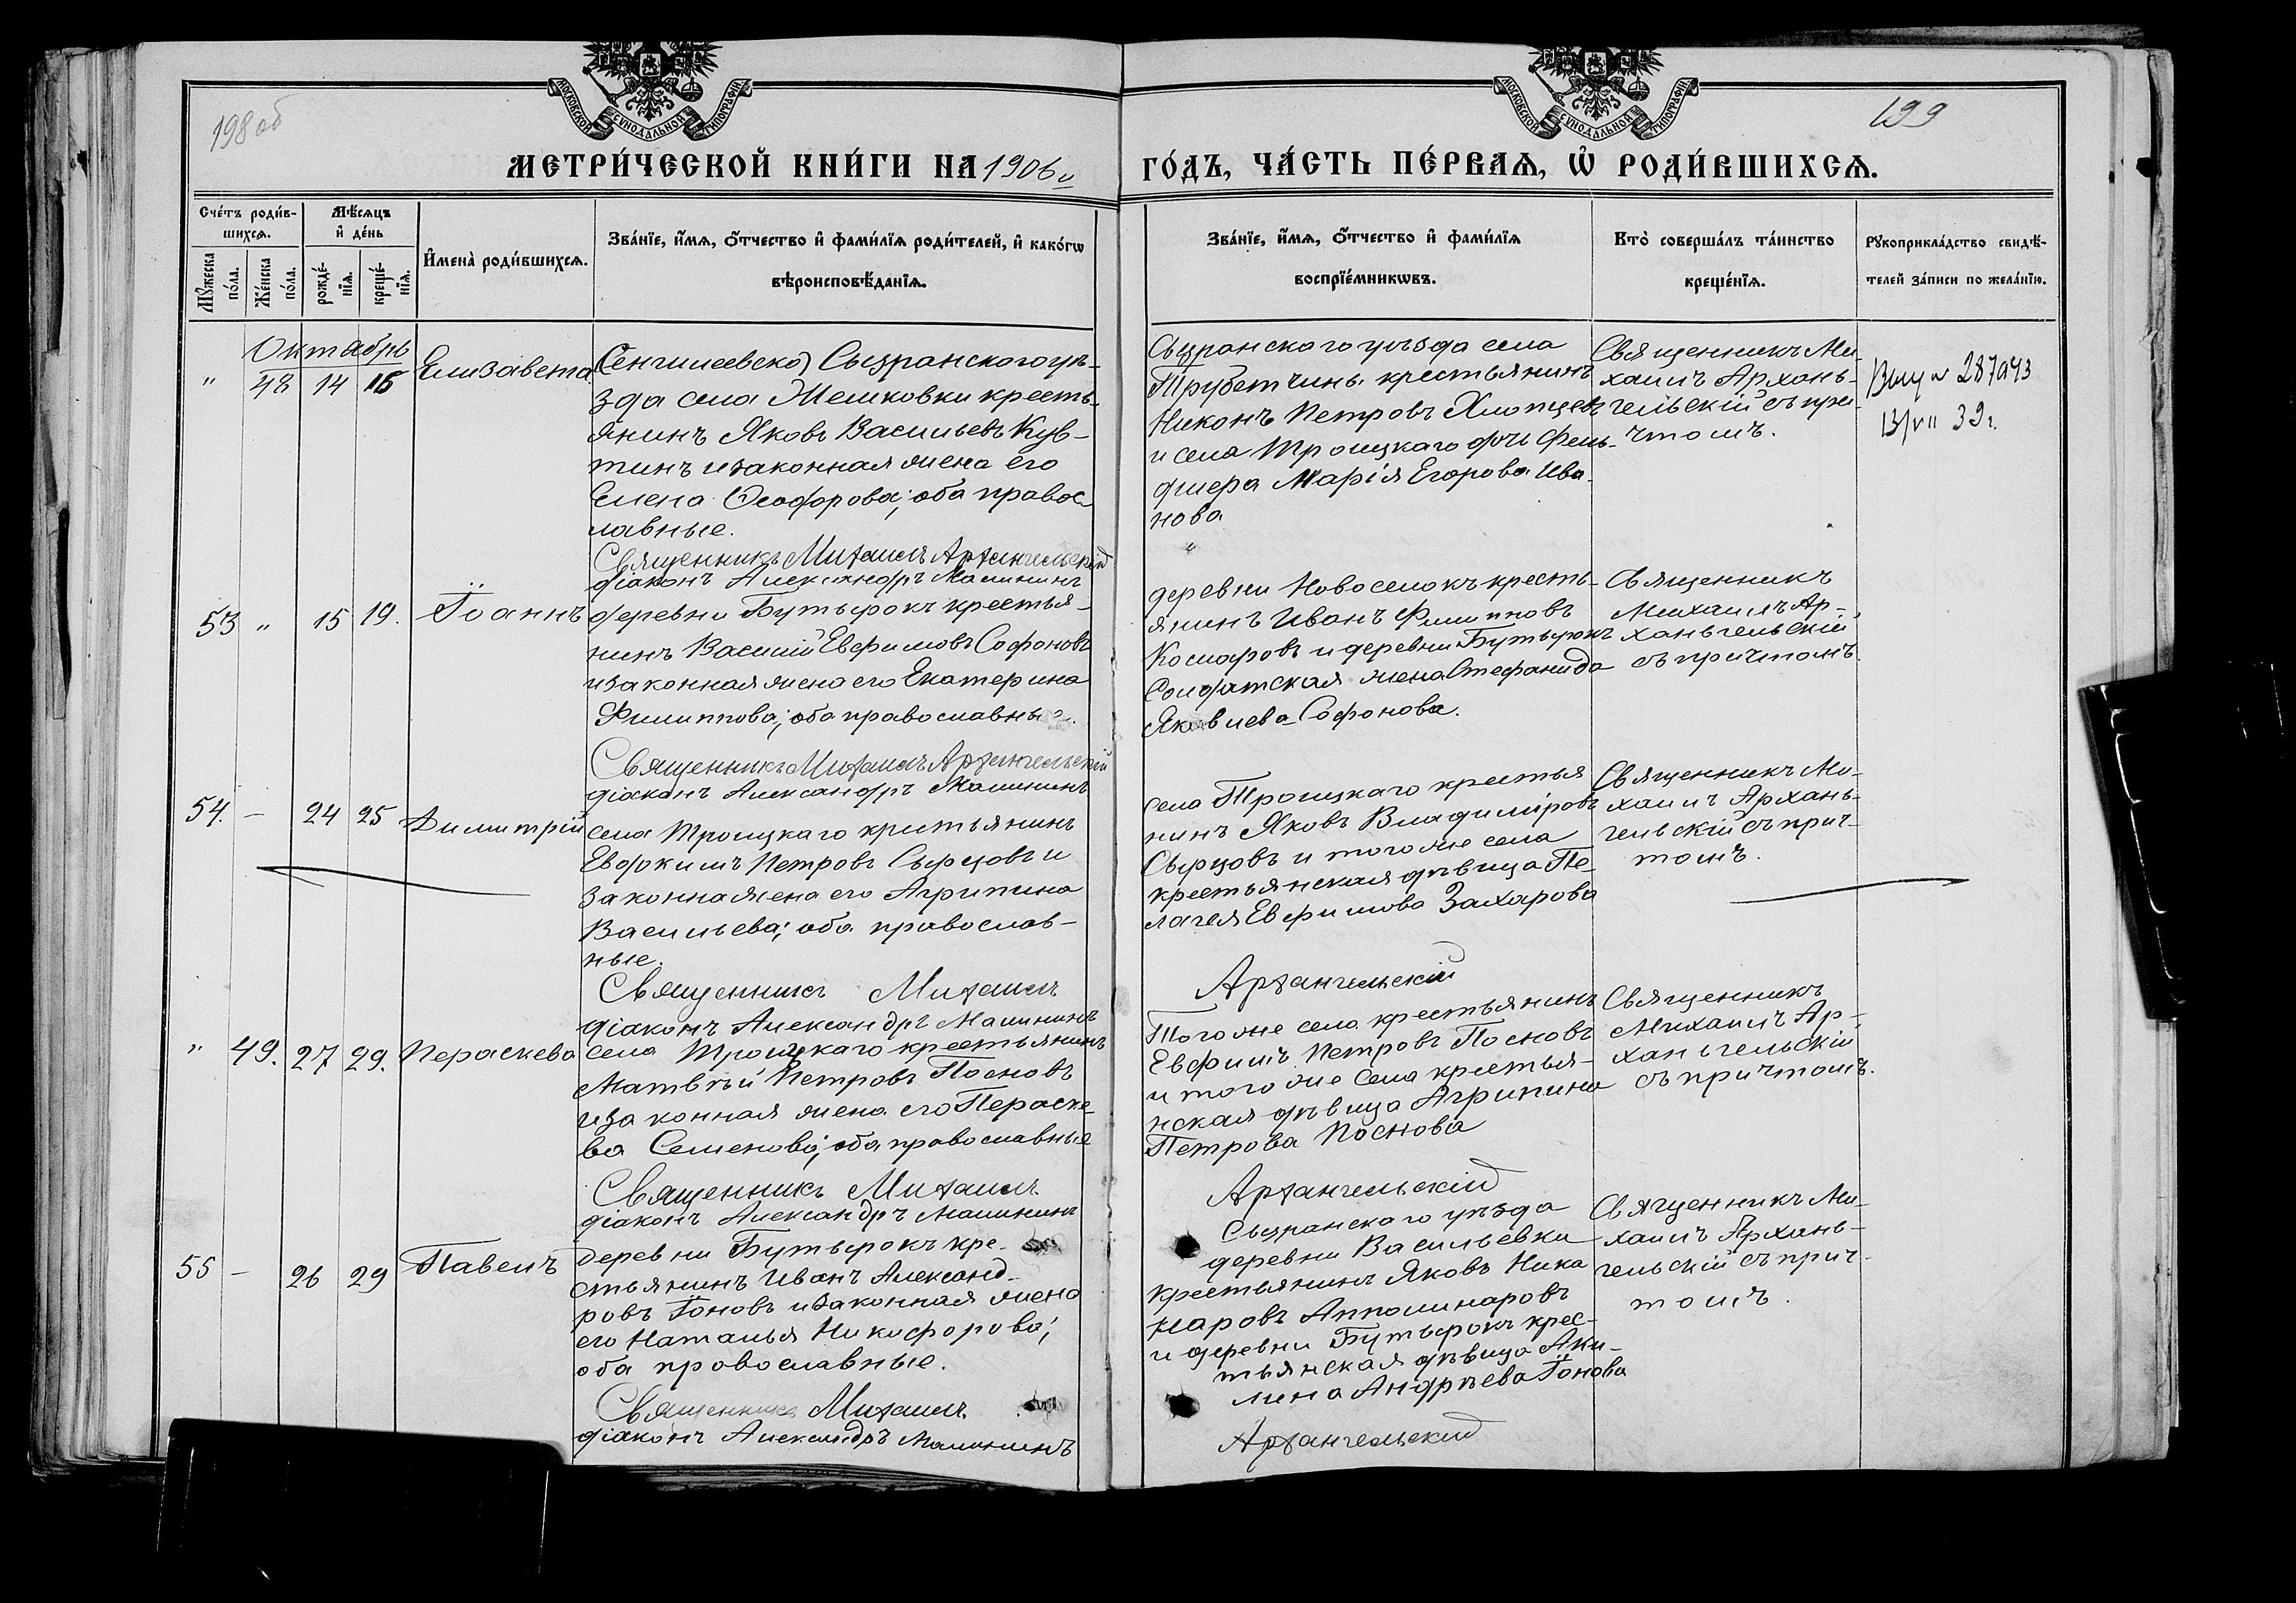 198 об
199
МОСКОВСКОЙ СѴНОДАЛЬНОЙ ТИПОГРАФІИ
МОСКОВСКОЙ СѴНОДАЛЬНОЙ ТИПОГРАФІИ
МЕТРИ́ЧЕСКОЙ КНИ́ГИ НА 1906й ГО́ДЪ, ЧА́СТЬ ПЕ́РВАѦ, Ѡ҆ РОДИ́ВШИХСѦ.
Сче́тъ роди́в-
шихсѧ.
Мꙋжеска по́ла.
Же́нска по́ла.
Мѣ́сѧцъ
и҆ де́нь
рожде́-
нїѧ.
креще́-
нїѧ.
И҆мена̀ роди́вшихсѧ.
Зва́нїе, и҆́мѧ, ѻ҆́тчество и҆ фами́лїѧ роди́телей, и҆ како́гѡ
вѣроисповѣ́данїѧ.
Зва́нїе, и҆́мѧ, ѻ҆́тчество и҆ фами́лїѧ
воспрїе́мникѡвъ.
Кто̀ соверша́лъ та́инство
креще́нїѧ.
Рꙋкоприкла́дство свидѣ́-
телей за́писи по жела́нїю.
Октябрь
" 48 14 16 Елизавета
Сенгилеевско) Сызранскаго уѣ-
зда села Жемковки кресть-
янинъ Яковъ Васильевъ Кув-
тинъ и законная жена его
Елена Ѳеодорова; оба правос-
лавные.
Священникъ Михаилъ Архангельскій
діаконъ Александръ Малининъ
Сызранскаго уѣзда села
Трубетчины крестьянинъ
Никонъ Петровъ Хлопцевъ
и села Троицкаго дочь фель-
дшера Марія Егорова Ива-
нова
Священникъ Ми-
хаилъ Архань-
гельскій съ при-
чтомъ.
287943
13/VII 39 г.
53 " 15 19. Іоаннъ
деревни Бутырокъ крестья-
нинъ Василій Евфимовъ Софоновъ
и законная жена его Екатерина
Филиппова; оба православные.
Священникъ Михаилъ Архангельскій
діаконъ Александръ Малининъ
деревни Новоселокъ кресть-
янинъ Иванъ Филипповъ
Комаровъ и деревни Бутырокъ
Солдатская жена Стефанида
Яковлева Софонова.
Священникъ
Михаилъ Ар-
ханьгельскій
съ причтомъ.
54. — 24 25 Димитрій
села Троицкаго крестьянинъ
Евдокимъ Петровъ Сырцовъ и
законная жена его Агрипина
Васильева; оба православ-
ные.
Священникъ Михаилъ Архангельскій
діаконъ Александръ Малининъ
села Троицкаго крестья
нинъ Яковъ Владиміровъ
Сырцовъ и того же села
крестьянская дѣвица Пе-
лагея Евфимова Захарова
Священникъ Ми-
хаилъ Архань-
гельскій съ прич-
томъ.
" 49. 27 29. Пераскева
села Троицкаго крестьянинъ
Матвѣй Петровъ Посновъ
и законная жена его Пераске-
ва Семенова; оба православные
Священникъ Михаилъ Архангельскій
діаконъ Александръ Малининъ
Того же села крестьянинъ
Евфимъ Петровъ Посновъ
и того же села крестья-
нская дѣвица Агрипина
Петрова Поснова
Священникъ
Михаилъ Ар-
ханьгельскій
съ причтомъ.
55 — 26 29 Павелъ
деревни Бутырокъ кре-
стьянинъ Иванъ Александ-
ровъ Іоновъ и законная жена
его Наталья Никифорова;
оба провославные.
Священникъ Михаилъ Архангельскій
діаконъ Александръ Малининъ
Сызранскаго уѣзда
деревни Васильевки
крестьянинъ Яковъ Ника
наровъ Апполинаровъ
и деревни Бутырокъ крес-
тьянская дѣвица Аку-
лина Андрѣева Іонова
Священникъ Ми-
хаилъ Архань-
гельскій съ прич-
томъ.